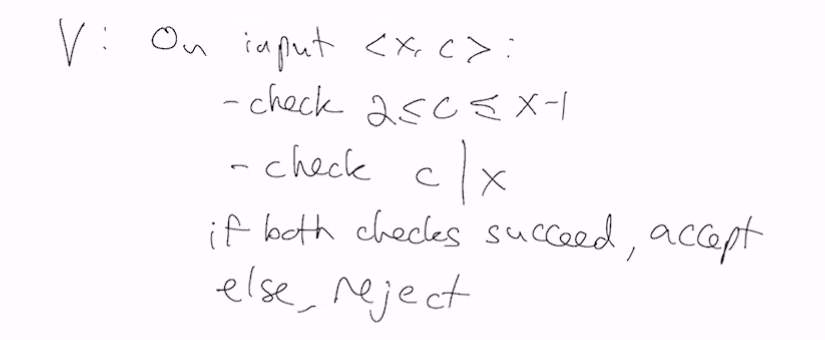 V: On input <x, c>:
- check 2 ≤ c ≤ x-1
- check c | x
if both checks succeed, accept
else, reject